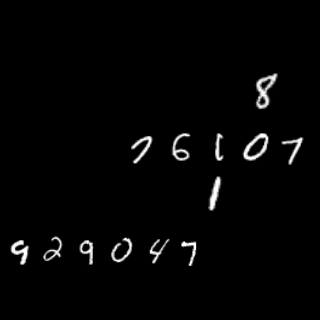 8
76107
1
929047